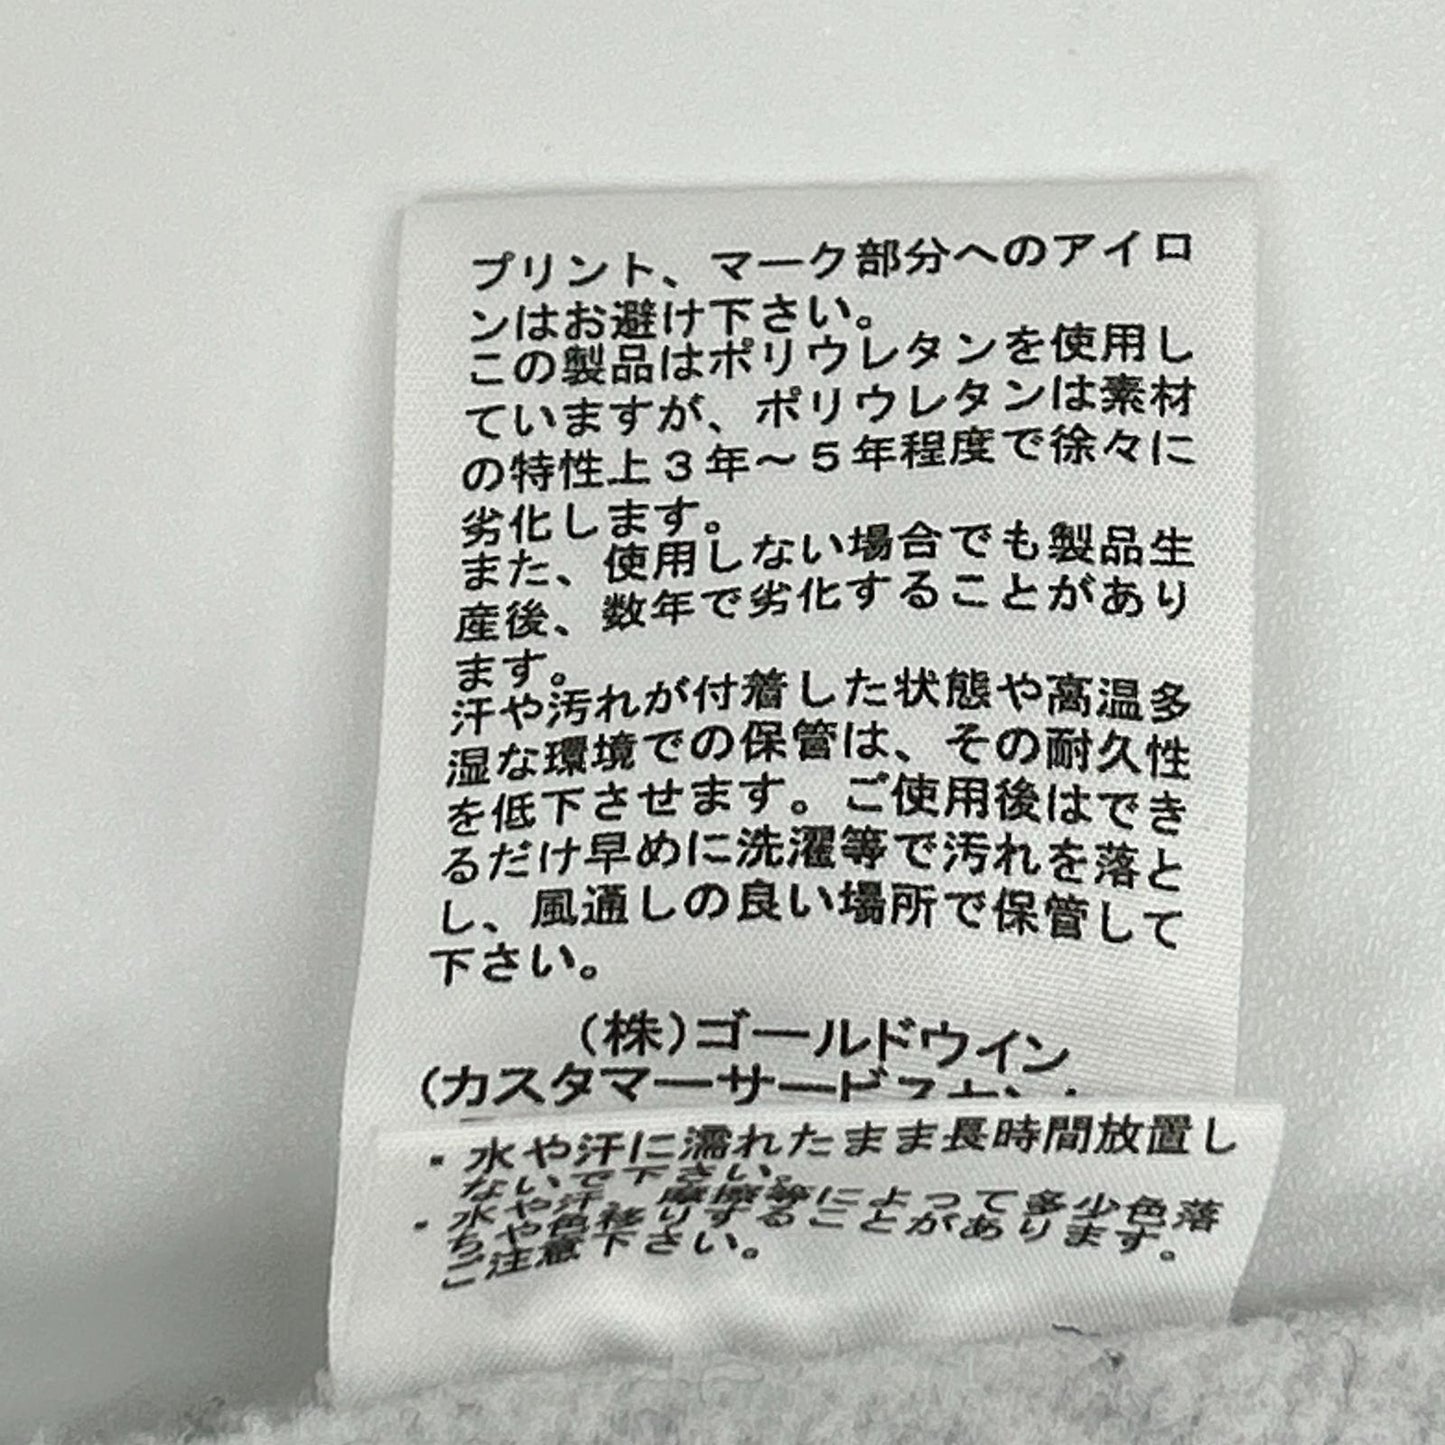 プリント、マーク部分へのアイロ
ンはお避け下さい。
この製品はポリウレタンを使用し
ていますが、ポリウレタンは素材
の特性上3年～5年程度で徐々に
劣化します。
また、使用しない場合でも製品生
産後、数年で劣化することがあり
ます。
汗や汚れが付着した状態や高温多
湿な環境での保管は、その耐久性
を低下させます。ご使用後はでき
るだけ早めに洗濯等で汚れを落と
し、風通しの良い場所で保管して
下さい。
(株)ゴールドウイン
(カスタマーサード
・水や汗に濡れたまま長時間放置し
ないで下さい。
・水や汗、摩擦等によって多少色落
ちや色移りすることがあります。
ご注意下さい。